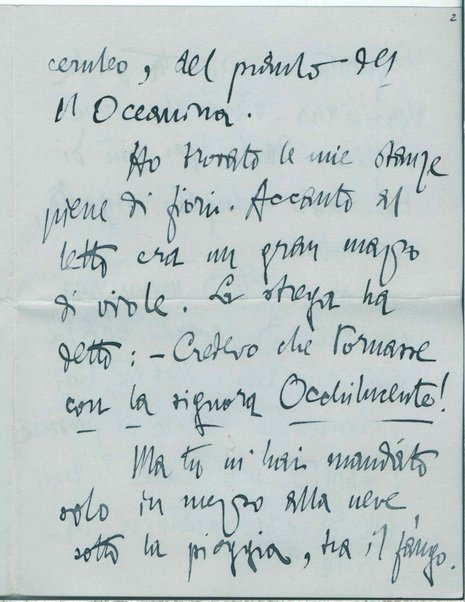 2
ceruleo, del pianto del
l'Oceanina.
Ho trovato le mie stanze
piene di fiori. Accanto al
letto era un gran mazzo
di viole. La strega ha
detto: – Credevo che tornasse
con la signora Occhilucenti!
Ma tu mi hai mandato
solo in mezzo alla neve,
sotto la pioggia, tra il fango.